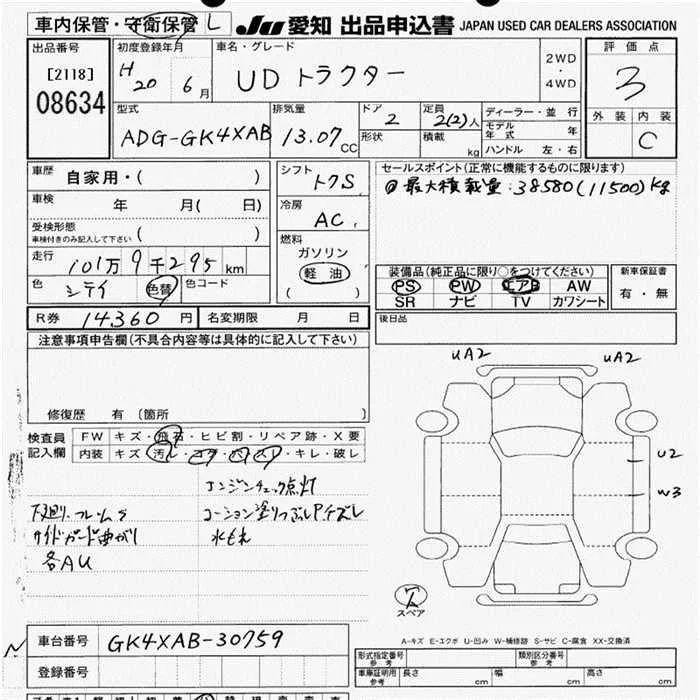 車内保管・守衛保管 L
JU 愛知 出品申込書 JAPAN USED CAR DEALERS ASSOCIATION
出品番号
[2118]
08634
初度登録年月
H20 6月
車名・グレード
UDトラクター
2WD
・
4WD
評価点
3
外装 内装
C
型式
ADG-GK4XAB
排気量
13.07 CC
ドア
2
定員
2(2)人
形状
積載
kg
ディーラー・並行
モデル年式 年
ハンドル 左・右
車歴
自家用・( )
車検
年 月( 日)
受検形態
車検付きのみ記入して下さい ( )
走行
101万9千295km
色
シテイ
色替
色コード
シフト
トクS
冷房
AC
燃料
ガソリン
軽油
( )
セールスポイント(正常に機能するものに限ります)
@最大積載量:38580(11500)kg
装備品(純正品に限り○をつけてください)
PS PW エアB AW
SR ナビ TV カワシート
新車保証書
有・無
R券 14360 円
名変期限 月 日
後日品
注意事項申告欄(不具合内容等は具体的に記入して下さい)
修復歴 有 〔箇所 〕
検査員
記入欄
FW キズ・飛石・ヒビ割・リペア跡・X要
内装 キズ・汚レ・コゲ・穴・スレ・キレ・破レ
エンジンチェック点灯
下廻り・フレームS
コーション塗りつぶしPイズレ
サイドガード曲がり
水もれ
各AU
UA2
UA2
U2
W3
スペア
A-キズ E-エクボ U-凹み W-補修跡 S-サビ C-腐食 XX-交換済
車台番号
GK4XAB-30759
登録番号
形式指定番号
参考
類別区分番号
参考
車庫証明用
参考
長さ cm
幅 cm
高さ cm